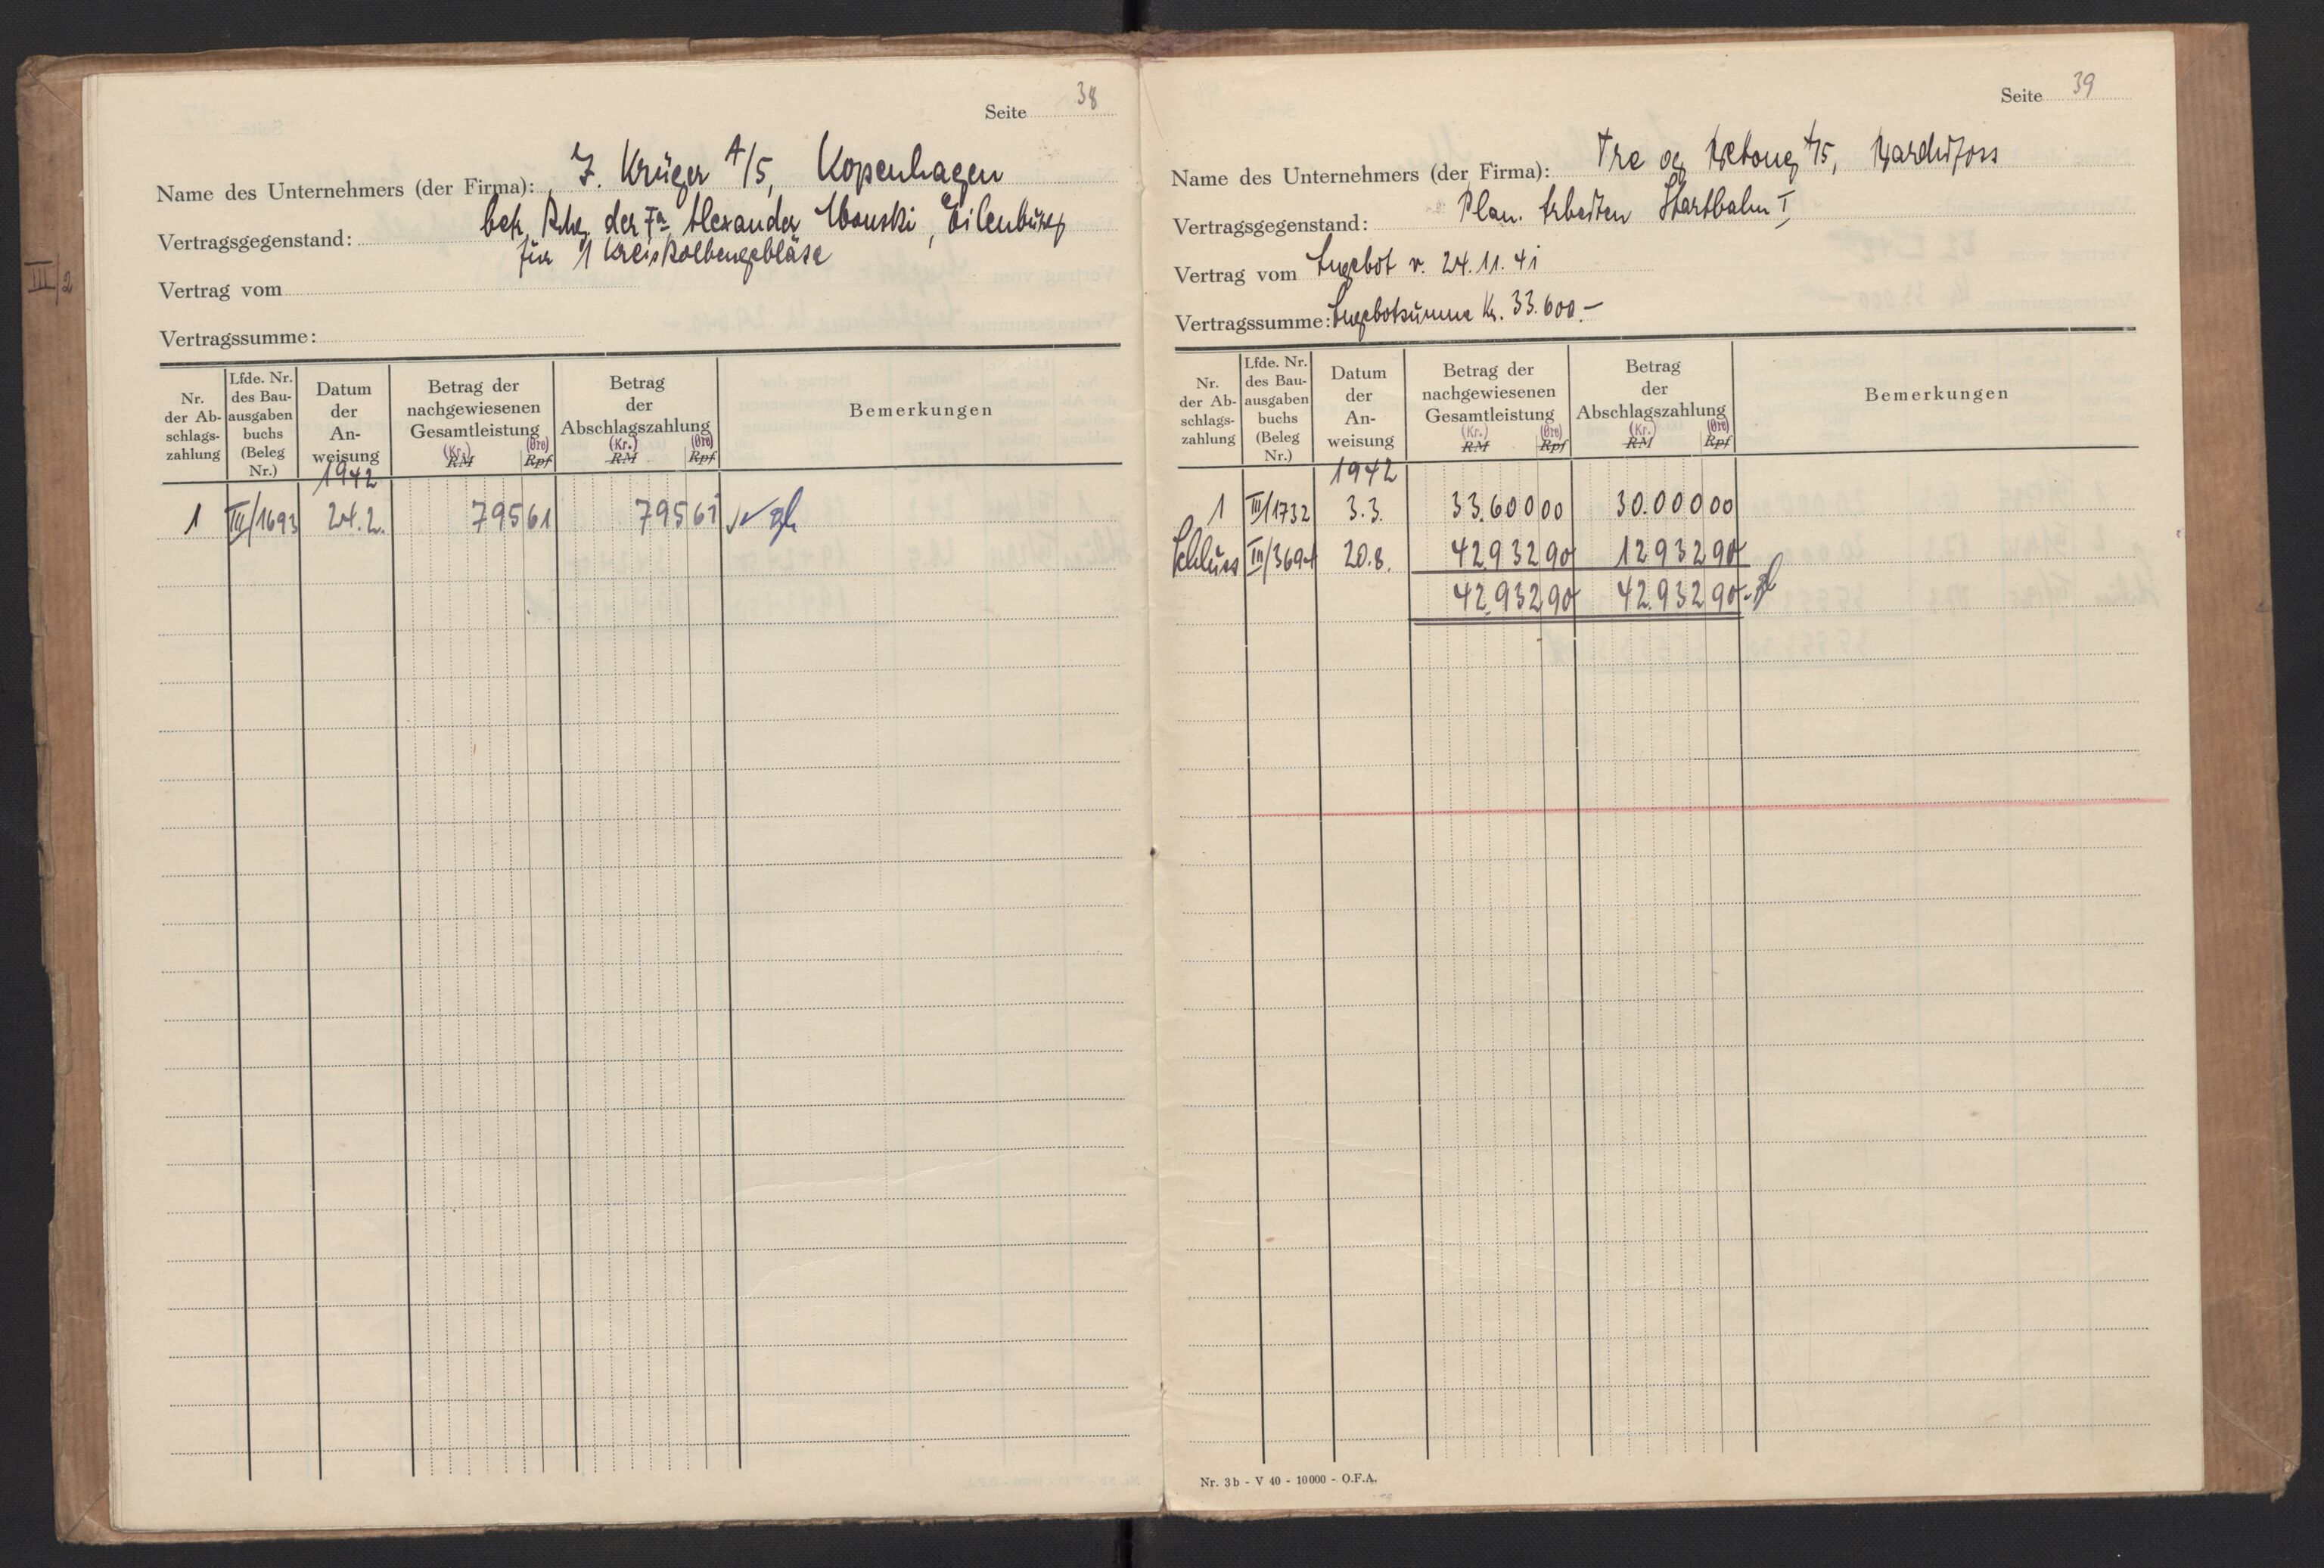 III/2
Seite 38
Name des Unternehmers (der Firma): J. Krüger A/S, Kopenhagen
Vertragsgegenstand: betr. Rchg. der Fa. Alexander Wonski, Eilenburg
für 1 Kreiskolbengebläse
Vertrag vom
Vertragssumme:
Nr. der Abschlagszahlung | Lfde. Nr. des Bauausgabenbuchs (Beleg Nr.) | Datum der Anweisung | Betrag der nachgewiesenen Gesamtleistung (Kr.) RM (Øre) Rpf | Betrag der Abschlagszahlung (Kr.) RM (Øre) Rpf | Bemerkungen
1942
1 III/1693 24.2. 795 61 795 61
Seite 39
Name des Unternehmers (der Firma): Tre og Betong A/S, Bardufoss
Vertragsgegenstand: Plan. Arbeiten Startbahn I
Vertrag vom Angebot v. 24.11.41
Vertragssumme: Angebotsumme Kr. 33.600.—
Nr. der Abschlagszahlung | Lfde. Nr. des Bauausgabenbuchs (Beleg Nr.) | Datum der Anweisung | Betrag der nachgewiesenen Gesamtleistung (Kr.) RM (Øre) Rpf | Betrag der Abschlagszahlung (Kr.) RM (Øre) Rpf | Bemerkungen
1942
1 III/1732 3.3. 33.600 00 30.000 00
Schluss III/3694 20.8. 42.932 90 12.932 90
42.932 90 42.932 90
Nr. 3b - V 40 - 10000 - O.F.A.